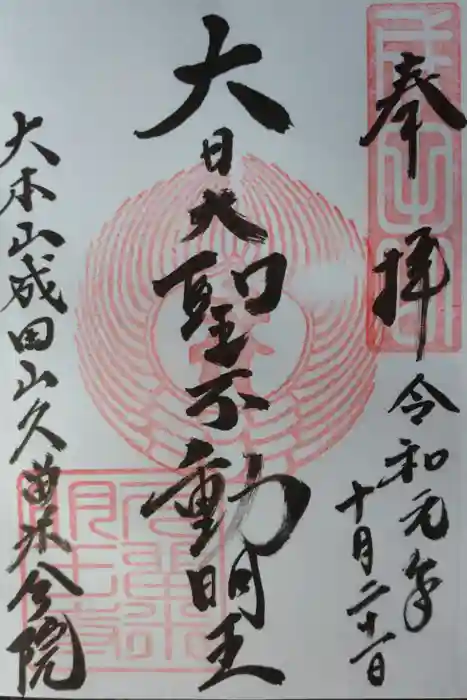 奉拝
令和元年
十月二十一日
大日大聖不動明王
大本山成田山久留米分院